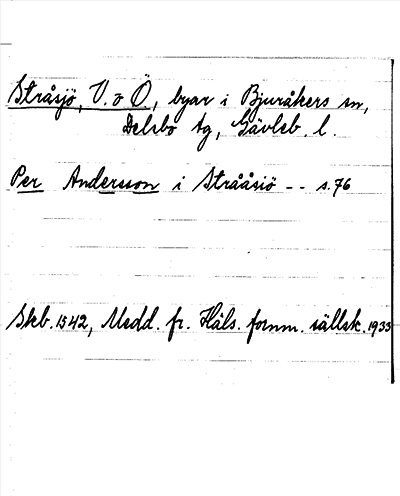 Stråsjö, V. o Ö, byar i Bjuråkers sn,
Delsbo tg, Gävleb. l.
Per Andersson i Strååsiö -- s. 76
Skb. 1542, Medd. fr. Häls. fornm. sällsk. 1933